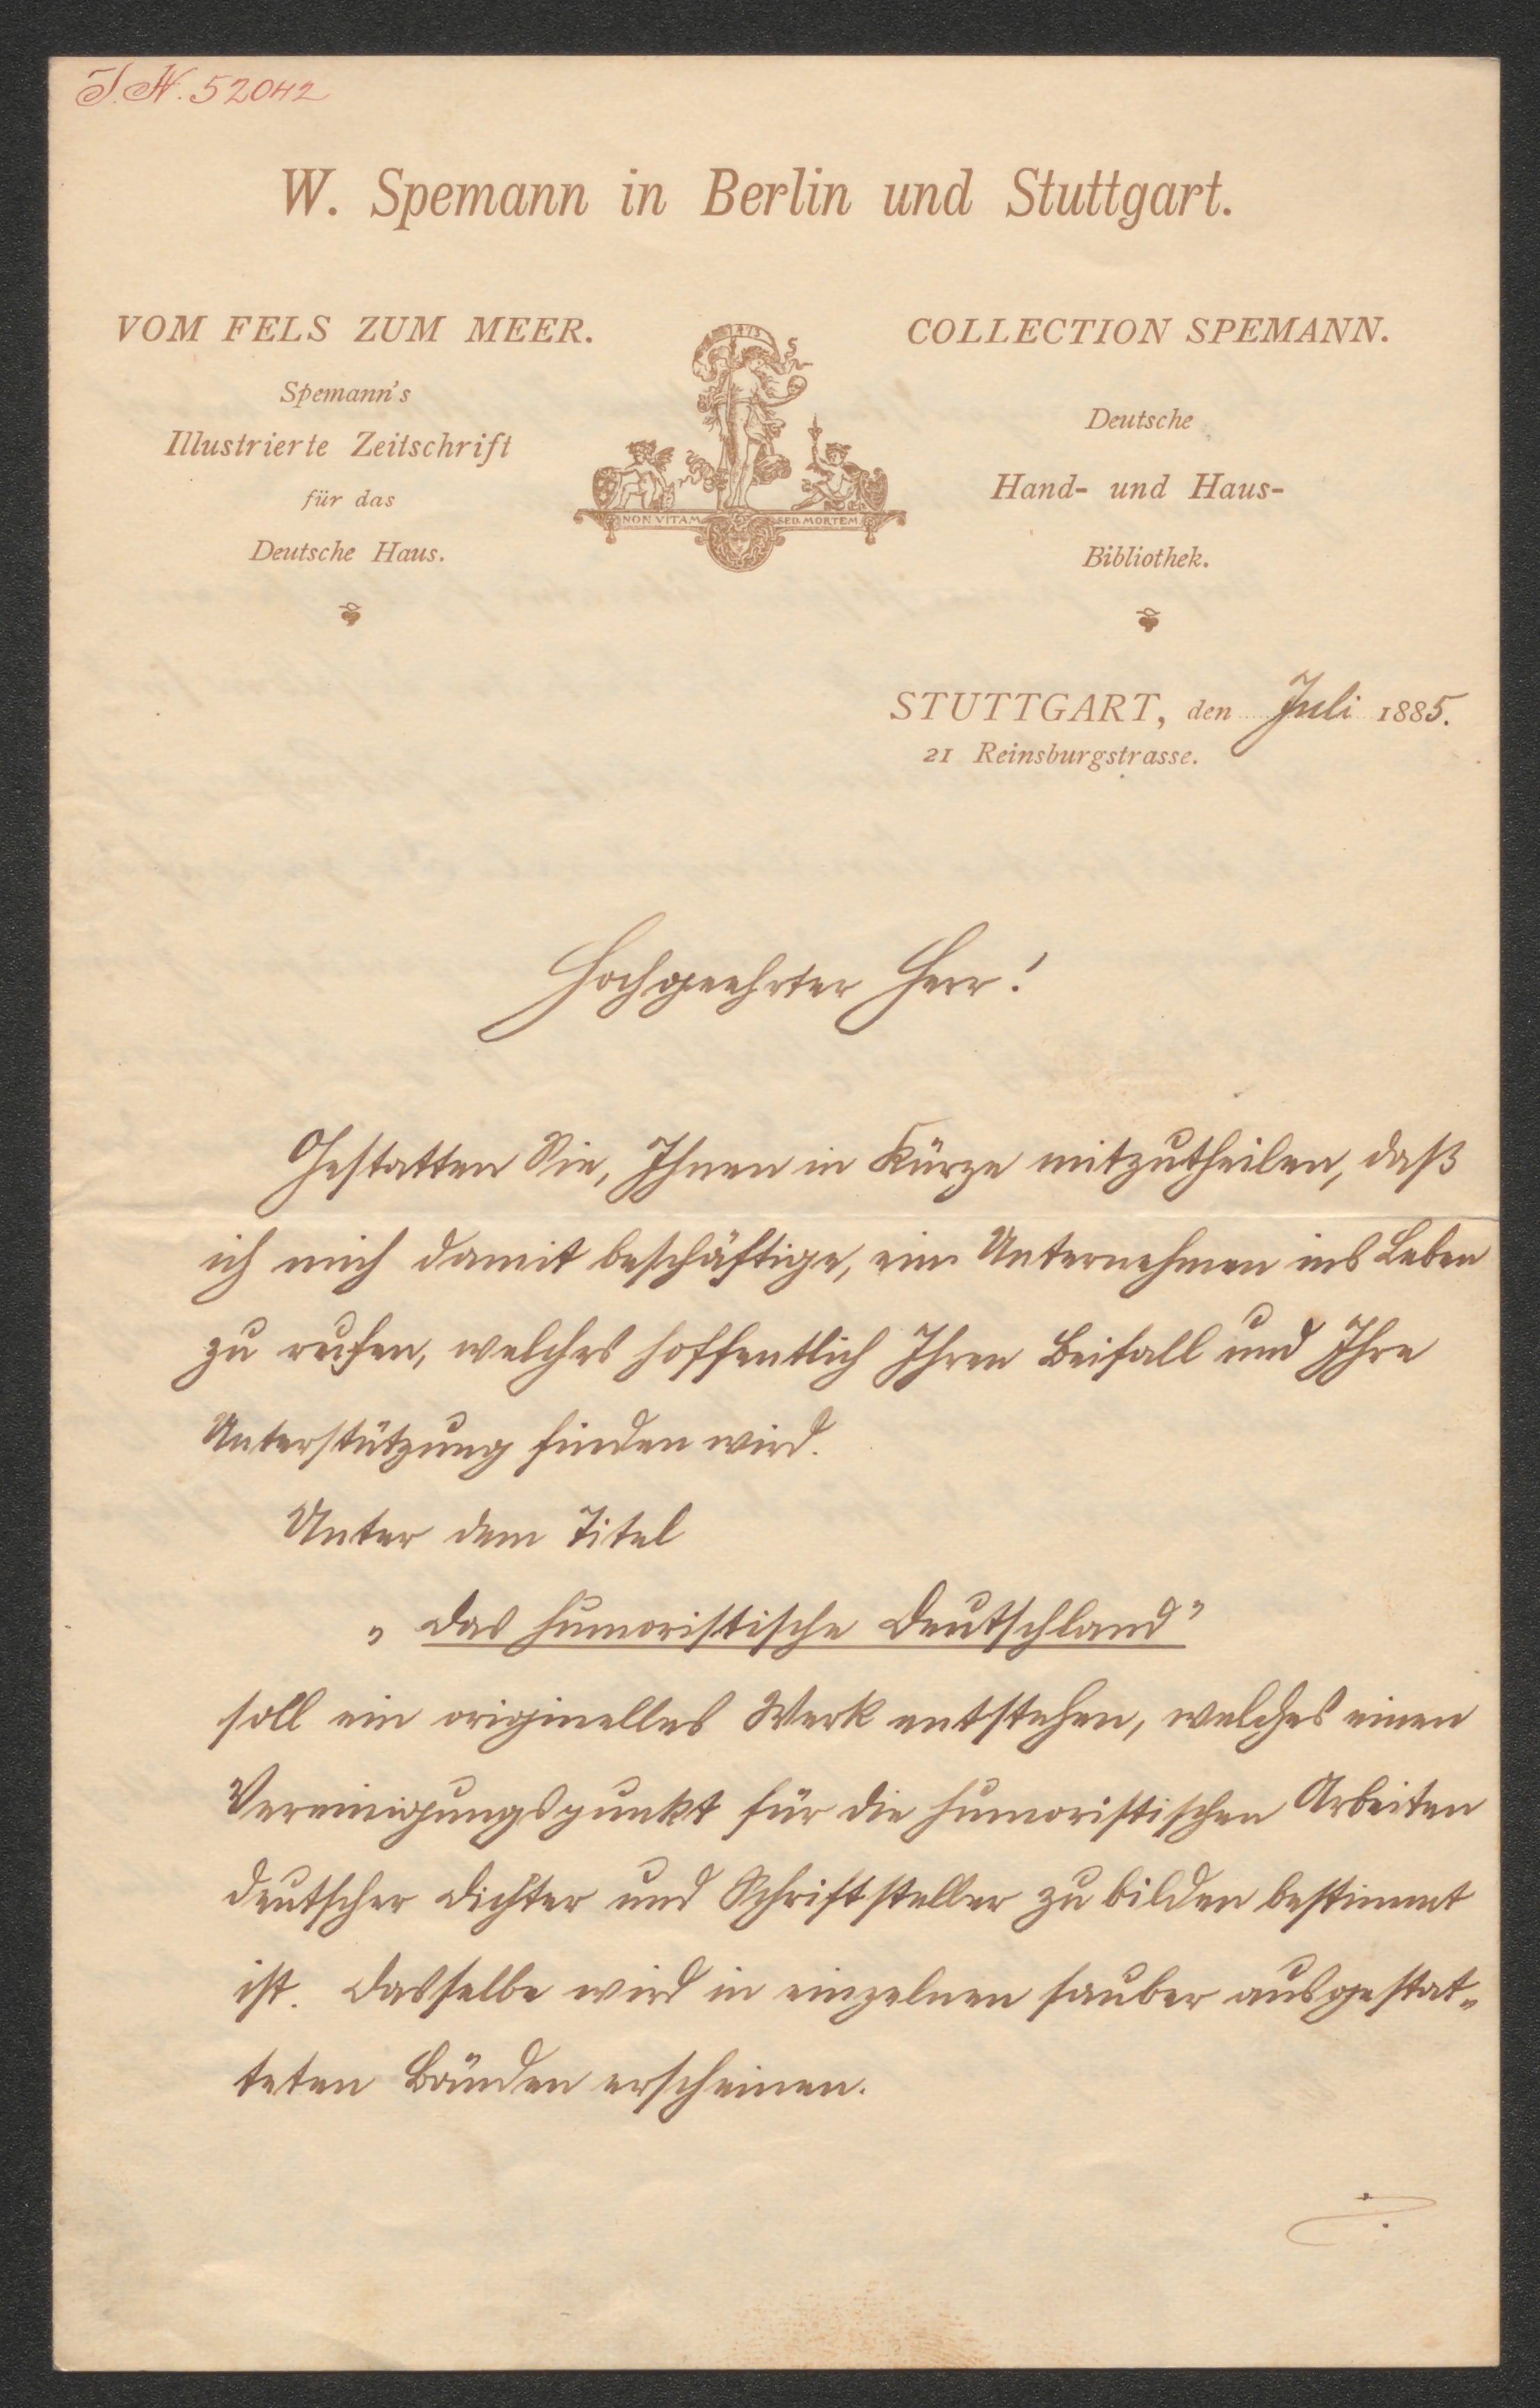 J.N. 52042
W. Spemann in Berlin und Stuttgart.
VOM FELS ZUM MEER.
Spemann's
Illustrierte Zeitschrift
für das
Deutsche Haus.
NON VITAM SED MORTEM
COLLECTION SPEMANN.
Deutsche
Hand- und Haus-
Bibliothek.
STUTTGART, den Juli 1885.
21 Reinsburgstrasse.
Hochgeehrter Herr!
Gestatten Sie, Ihnen in Kürze mitzutheilen, daß
ich mich damit beschäftige, ein Unternehmen ins Leben
zu rufen, welches hoffentlich Ihren Beifall und Ihre
Unterstützung finden wird.
Unter dem Titel
„Das humoristische Deutschland"
soll ein originelles Werk entstehen, welches einen
Vereinigungspunkt für die humoristischen Arbeiten
deutscher Dichter und Schriftsteller zu bilden bestimmt
ist. Dasselbe wird in einzelnen sauber ausgestat-
teten Bänden erscheinen.